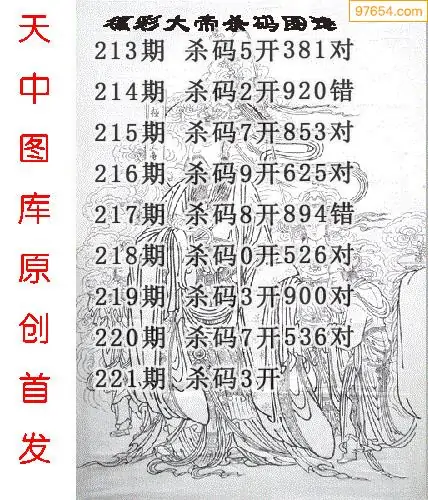 97654.com
福彩大帝杀码图迷
213期 杀码5开381对
214期 杀码2开920错
215期 杀码7开853对
216期 杀码9开625对
217期 杀码8开894错
218期 杀码0开526对
219期 杀码3开900对
220期 杀码7开536对
221期 杀码3开
天中图库原创首发